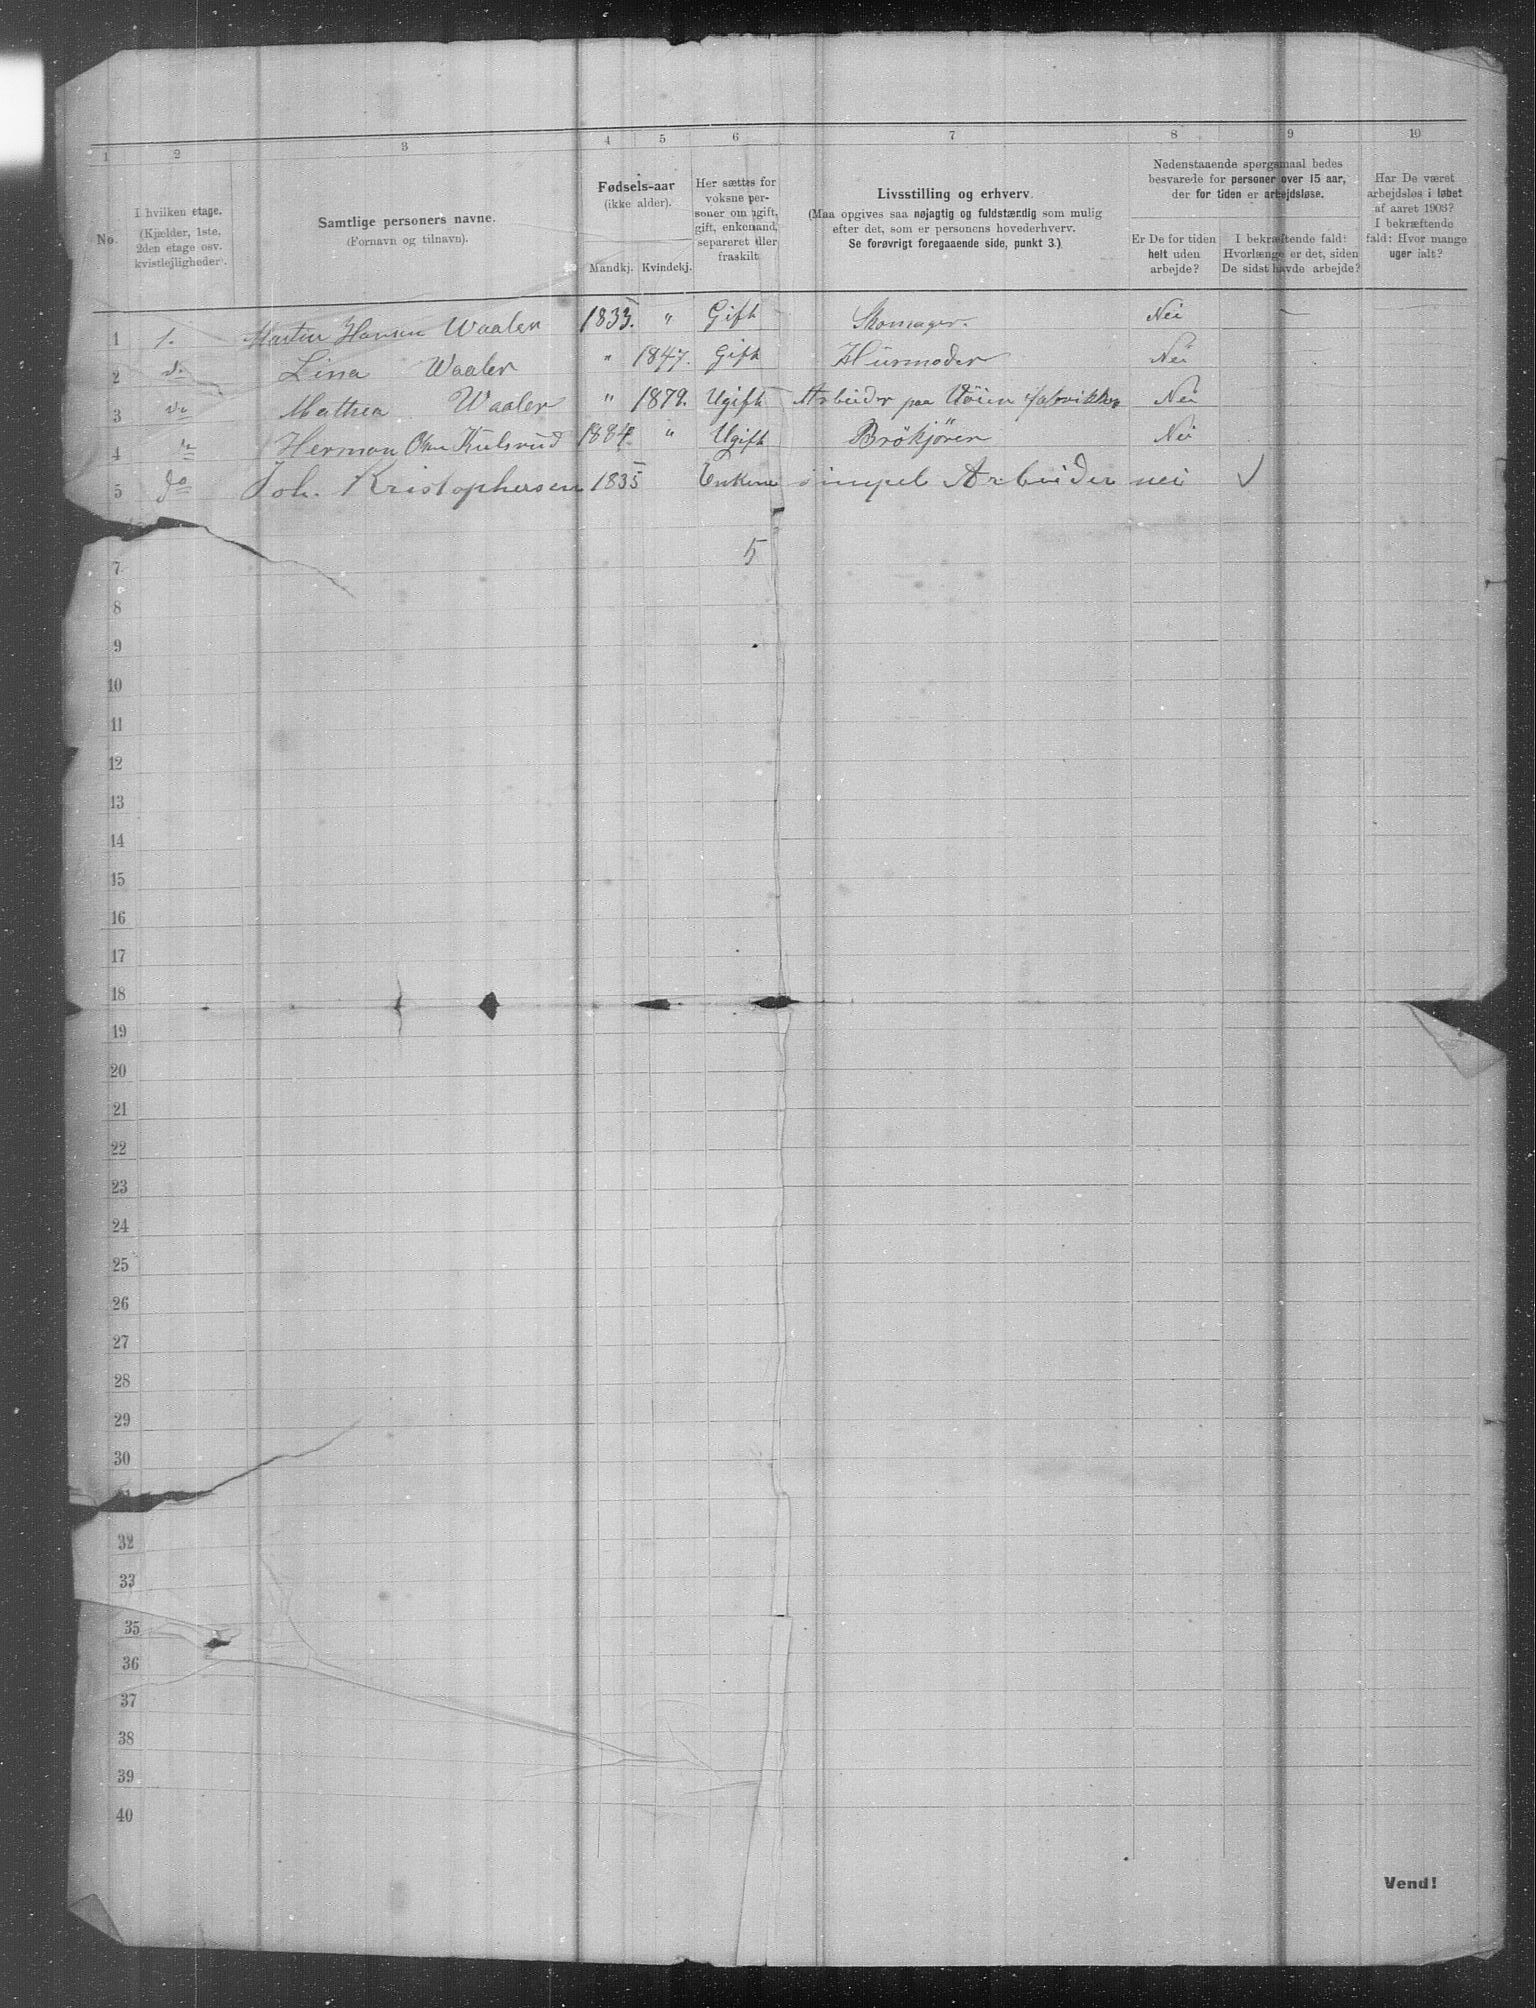 1 2 3 4 5 6 7 8 9 10
No. I hvilken etage. (Kjælder, 1ste, 2den etage osv. kvistlejligheder).
Samtlige personers navne.
(Fornavn og tilnavn).
Fødsels-aar
(ikke alder).
Mandkj. Kvindekj.
Her sættes for
voksne per-
soner om ugift,
gift, enkemand,
separeret eller
fraskilt.
Livsstilling og erhverv.
(Maa opgives saa nøjagtig og fuldstændig som mulig
efter det, som er personens hovederhverv.
Se forøvrigt foregaaende side, punkt 3.)
Nedenstaaende spørgsmaal bedes
besvarede for personer over 15 aar,
der for tiden er arbejdsløse.
Er De for tiden
helt uden
arbejde?
I bekræftende fald:
Hvorlænge er det, siden
De sidst havde arbejde?
Har De været
arbejdsløs i løbet
af aaret 1903?
I bekræftende
fald: Hvor mange
uger ialt?
1 1. Martin Hansen Waaler 1833. " Gift Skomager. Nei —
2 do Lina Waaler " 1847. Gift Husmoder Nei
3 do Mathea Waaler " 1879. Ugift Arbeider paa Vøien fabrikker Nei
4 do Herman Kulsrud 1884. " Ugift Brökjörer Nei
5 do Joh. Kristophersen 1835 Enkem simpel Arbeider nei √
5
7
8
9
10
11
12
13
14
15
16
17
18
19
20
21
22
23
24
25
26
27
28
29
30
32
33
35
36
37
38
39
40
Vend!